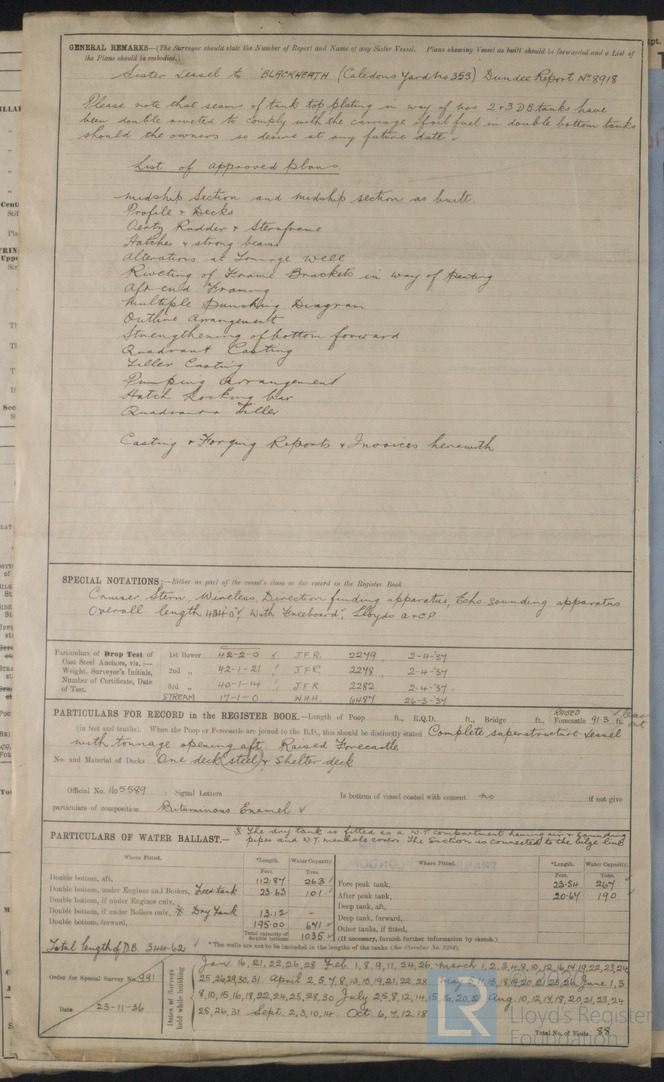 GENERAL REMARKS—(The Surveyor should state the Number of Report and Name of any Sister Vessel. Plans shewing Vessel as built should be forwarded and a List of
the Plans should be embodied.)
Sister Vessel to "BLACKHEATH (Caledon Yard No 353) Dundee Report No 8918
Please note that seams of tank top plating in way of nos 2 & 3 D.B. tanks have
been double riveted to comply with the carriage of oil fuel in double bottom tanks
should the owners so desire at any future date.
List of approved plans
Midship Section and midship section as built.
Profile & Decks
Rudder & Sternframe
Hatches & strong beams
Alterations at Tonnage well
Riveting of Frame Brackets in way of Panting
Aft end Framing
Multiple Punching Diagram
Outline Arrangement
Strengthening of bottom forward
Quadrant Casting
Tiller Casting
Pumping Arrangement
Hatch Locking bar
Quadrant & Tiller
Casting & Forging Reports & Invoices herewith
SPECIAL NOTATIONS:—Either as part of the vessel's class or for record in the Register Book.
Cruiser Stern, Wireless, Direction finding apparatus, Echo sounding apparatus
Overall length "With Freeboard", Lloyds A & CP
Particulars of Drop Test of
Cast Steel Anchors, viz.:—
Weight, Surveyor's Initials,
Number of Certificate, Date
of Test.
1st Bower 42-2-0 J.F.R. 2279 2-4-37
2nd „ 42-1-21 J.F.R. 2278 2-4-37
3rd „ 40-1-14 J.F.R. 2282 2-4-37
STREAM 17-1-0 W.H.H. 6487 26-3-37
PARTICULARS FOR RECORD in the REGISTER BOOK.—Length of Poop ft., R.Q.D. ft., Bridge ft., RAISED Forecastle 91.3 ft.
(in feet and tenths). When the Poop or Forecastle are joined to the B.D., this should be distinctly stated Complete superstructure vessel
with tonnage opening aft. Raised Forecastle
No. and Material of Decks One deck (steel) & Shelter deck
Official No. 165589 Signal Letters Is bottom of vessel coated with cement no if not give
particulars of composition Bituminous Enamel
PARTICULARS OF WATER BALLAST.— The dry tank is fitted as a W.T. compartment having air & sounding
pipes and W.T. manhole covers. The suction is connected to the bilge line
Where Fitted. *Length. Water Capacity. Where Fitted. *Length. Water Capacity.
Feet. Tons. Feet. Tons.
Double bottom, aft, 112.87 263 Fore peak tank, 23.54 267
Double bottom, under Engines and Boilers, Feed tank 23.63 101 After peak tank, 20.67 190
Double bottom, if under Engines only, Deep tank, aft,
Double bottom, if under Boilers only, Dry Tank 13.12 – Deep tank, forward,
Double bottom, forward, 195.00 671 Other tanks, if fitted,
Total capacity of double bottom 1035 (If necessary, furnish further information by sketch.)
Total length of DB 344.62 *The wells are not to be included in the lengths of the tanks
Order for Special Survey No. 991
Date 23-11-36
Dates of Surveys held while building
Jan 16, 21, 22, 26, 28 Feb 1, 8, 9, 11, 24, 26 March 1, 2, 3, 4, 8, 10, 12, 16, 17, 19, 22, 23, 24
25, 26, 29, 30, 31 April 2, 5, 7, 8, 13, 15, 19, 21, 22, 28 May June 1, 3
8, 10, 15, 16, 18, 22, 24, 25, 28, 30 July Aug 10, 12, 17, 18, 20, 21, 23, 24
25, 26, 31 Sept 2, 3, 10, 14 Oct 6, 7, 12, 18
Total No. of Visits 88
© 2020
Lloyd's Register
Foundation